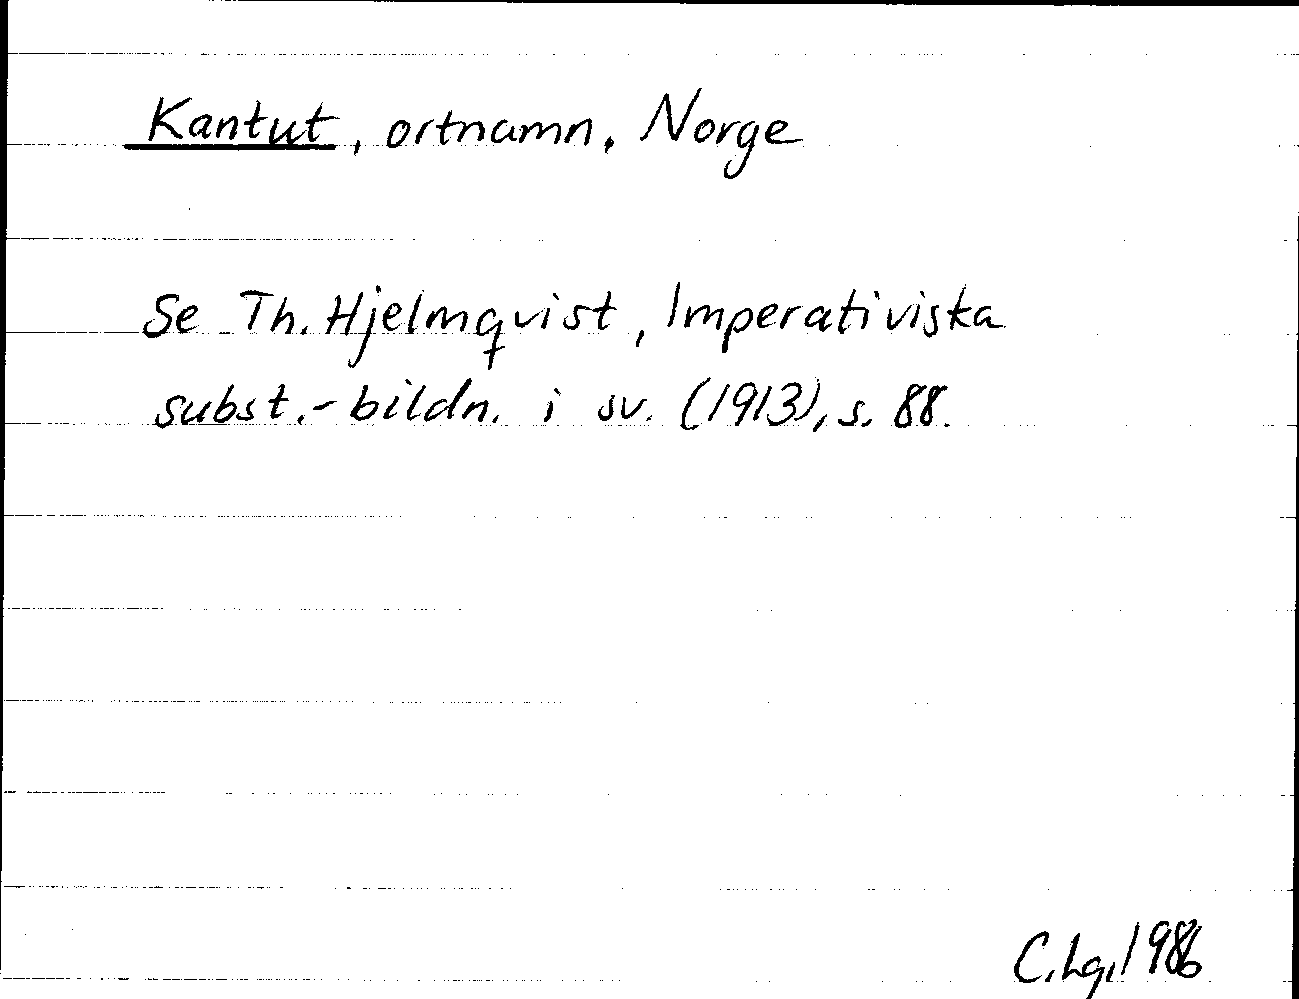 Kantut, ortnamn. Norge
Se Th. Hjelmqvist, Imperativiska
subst.-bildn. i sv. (1913), s. 88.
C. Lg. 1986